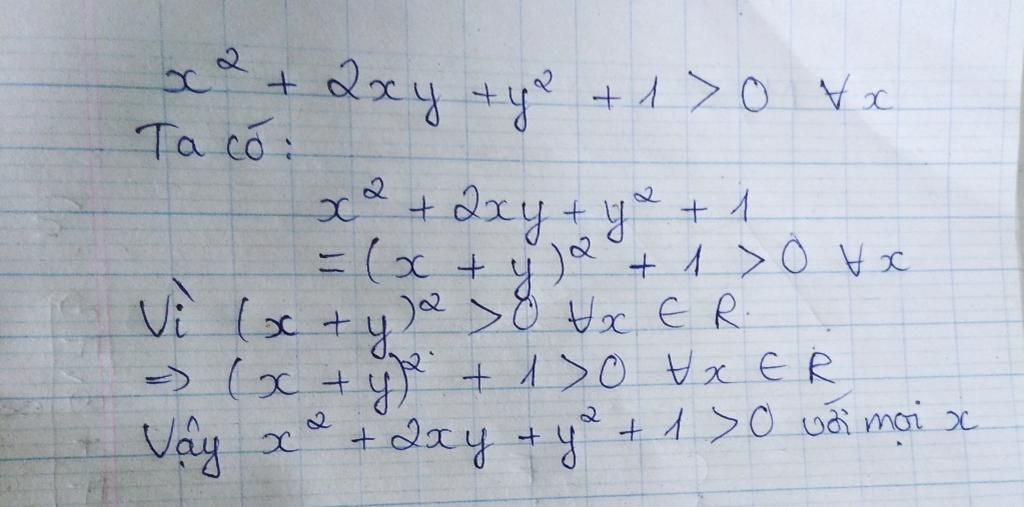 x² + 2xy + y² + 1 > 0 ∀x
Ta có:
x² + 2xy + y² + 1
= (x + y)² + 1 > 0 ∀x
Vì (x + y)² > 0 ∀x ∈ R.
=> (x + y)² + 1 > 0 ∀x ∈ R
Vậy x² + 2xy + y² + 1 > 0 với mọi x